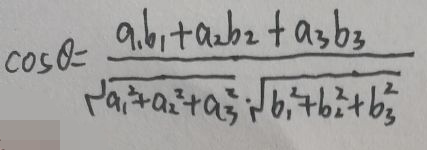 cosθ = (a₁b₁ + a₂b₂ + a₃b₃) / (√(a₁² + a₂² + a₃²) · √(b₁² + b₂² + b₃²))